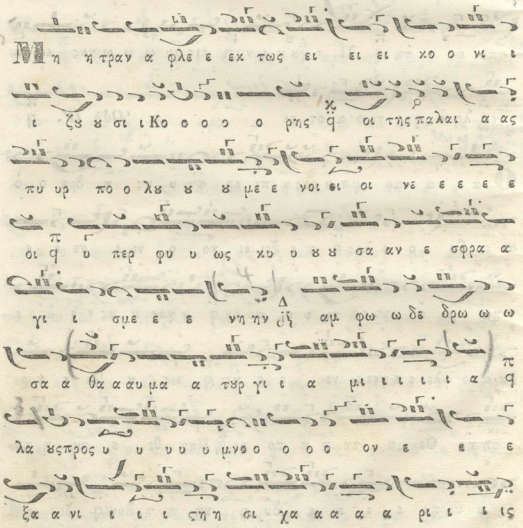 Μη η τραν α φλε ε εκ τως ει ει ει κο ο νι ι
ι ζȣ ȣ σι ι Κο ο ο ο ο ρης οι της παλαι α ας
πυ υρ πο ο λȣ ȣ ȣ ȣ με ε νοι ει οι νε ε ε ε ε
οι υ περ φυ υ ως κυ υ ȣ ȣ σα αν ε σφρα α
γι ι σμε ε ε νη ην αμ φω ω ω δε δρω ω ω
σα α θα α αυ μα α τȣρ γι ι α μι ι ι ι ι ι α
λα ȣς προς υ υ υ υ υ μνο ο ο ο ο ον ε ε ε ε
ξα α νι ι ι ι ςη η σι χα α α α α ρι ι ι ις